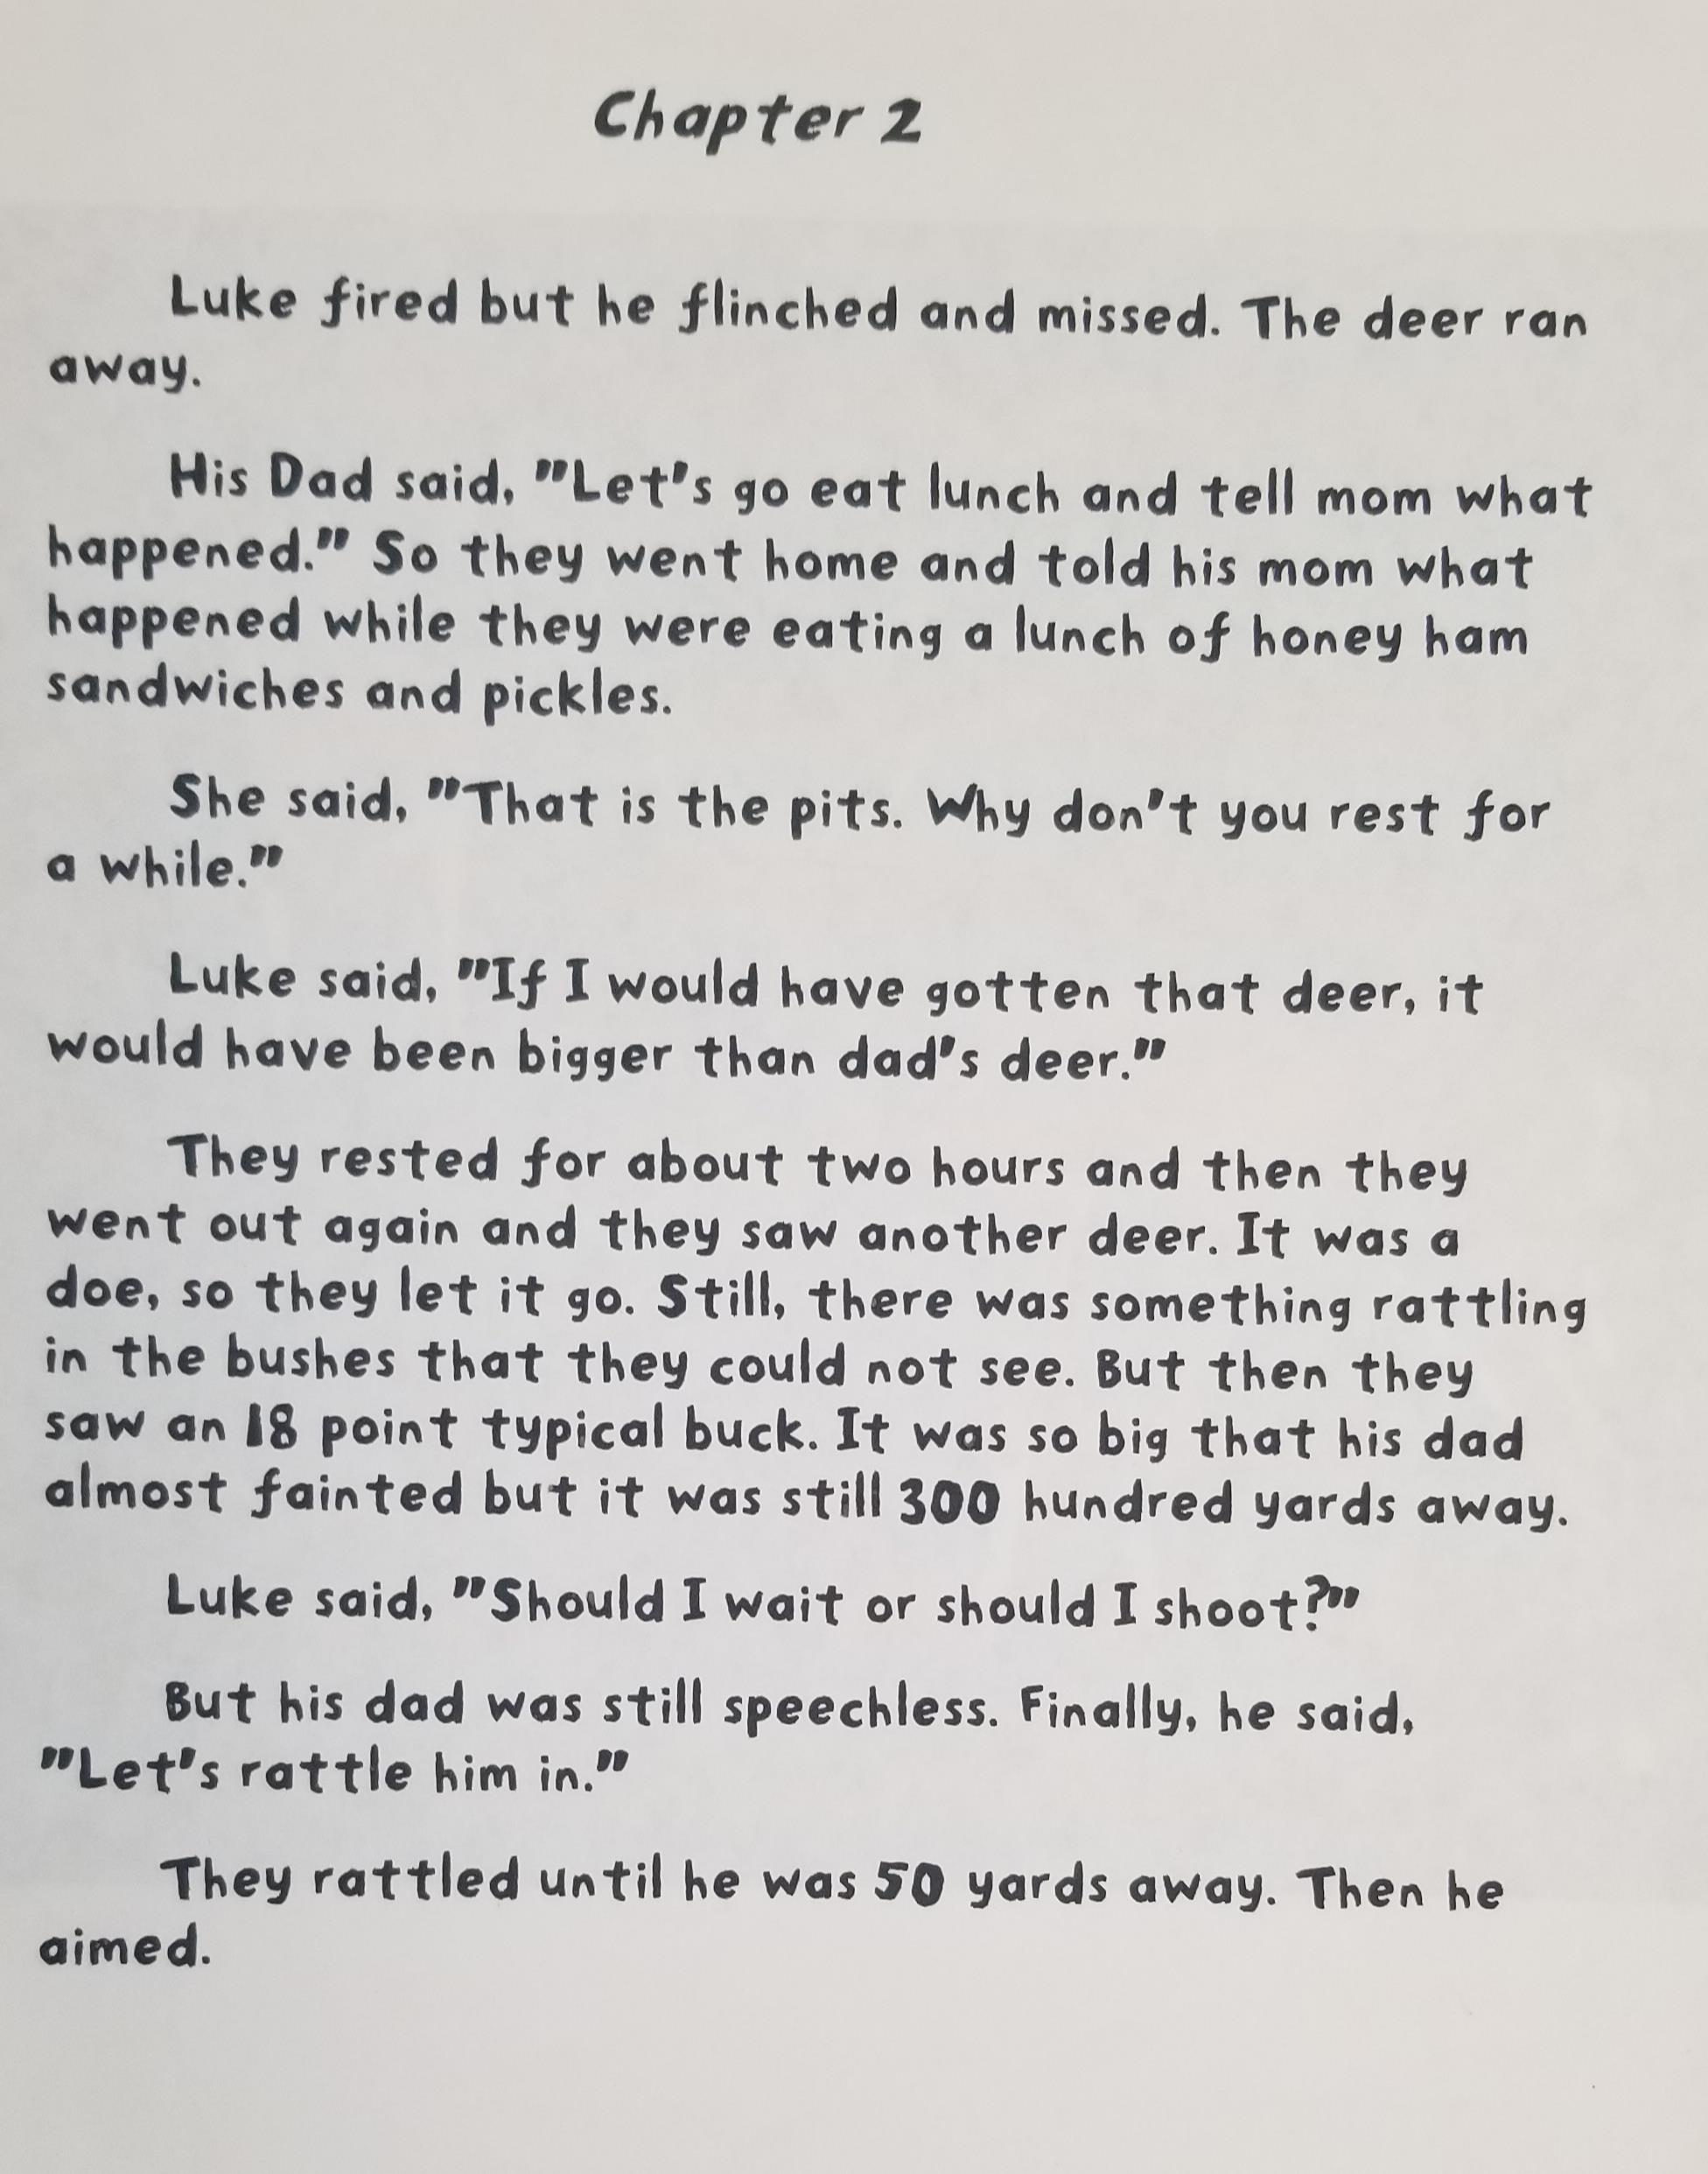 Chapter 2
Luke fired but he flinched and missed. The deer ran
away.
His Dad said, "Let's go eat lunch and tell mom what
happened." So they went home and told his mom what
happened while they were eating a lunch of honey ham
sandwiches and pickles.
She said, "That is the pits. Why don't you rest for
a while."
Luke said, "If I would have gotten that deer, it
would have been bigger than dad's deer."
They rested for about two hours and then they
went out again and they saw another deer. It was a
doe, so they let it go. Still, there was something rattling
in the bushes that they could not see. But then they
saw an 18 point typical buck. It was so big that his dad
almost fainted but it was still 300 hundred yards away.
Luke said, "Should I wait or should I shoot?"
But his dad was still speechless. Finally, he said,
"Let's rattle him in."
They rattled until he was 50 yards away. Then he
aimed.